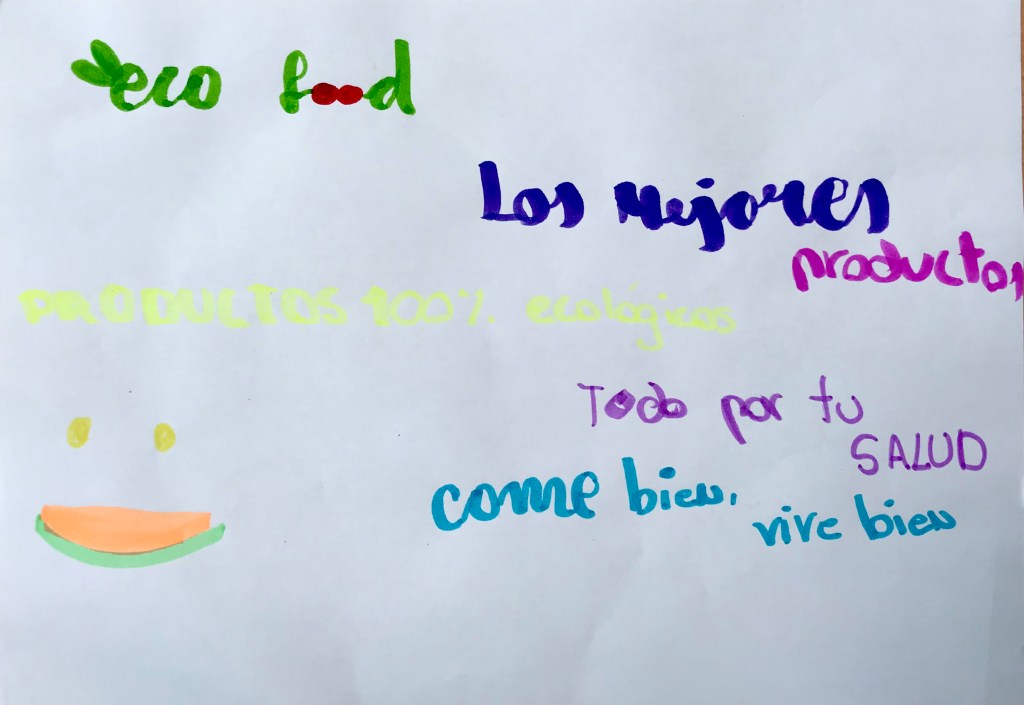 eco food
Los Mejores
productos
PRODUCTOS 100% ecológicos
Todo por tu
SALUD
come bien,
vive bien